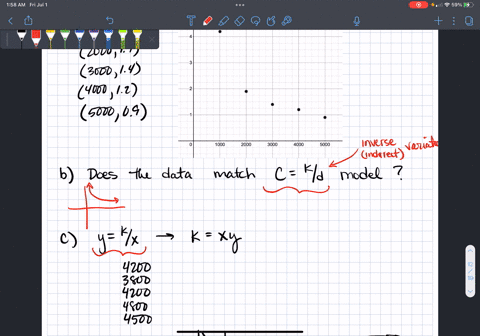 1:58 AM Fri Jul 1
59%
(3000, 1.4)
(4000, 1.2)
(5000, 0.9)
4
3
2
1
0 1000 2000 3000 4000 5000
inverse
(indirect) variation
b) Does the data match C = k/d model ?
c) y = k/x → k = xy
4200
3800
4200
4800
4500